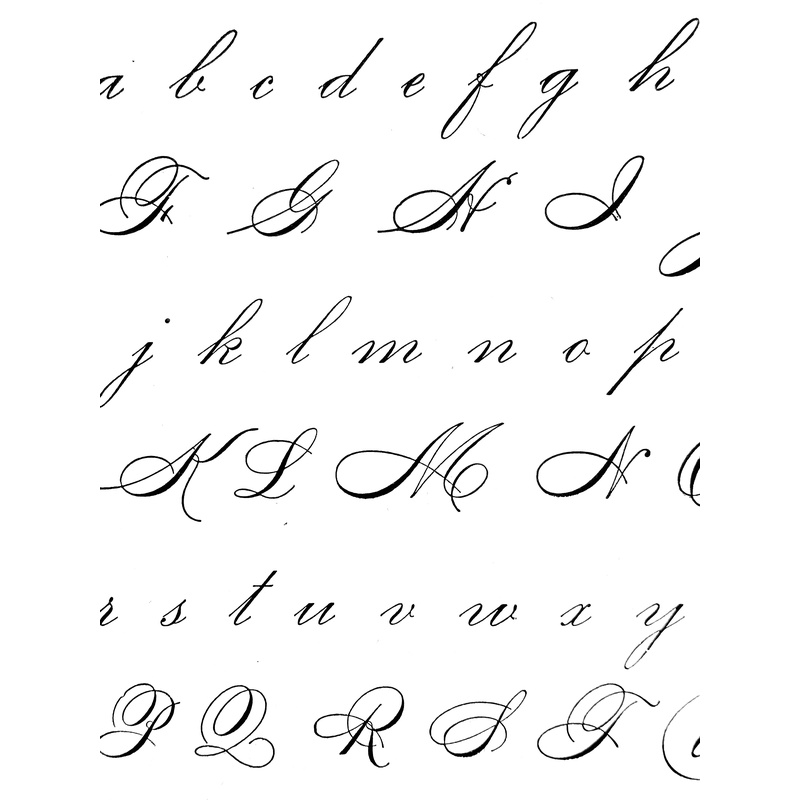 a b c d e f g h
F G H I
j k l m n o p
K L M N O
r s t u v w x y
P Q R S T